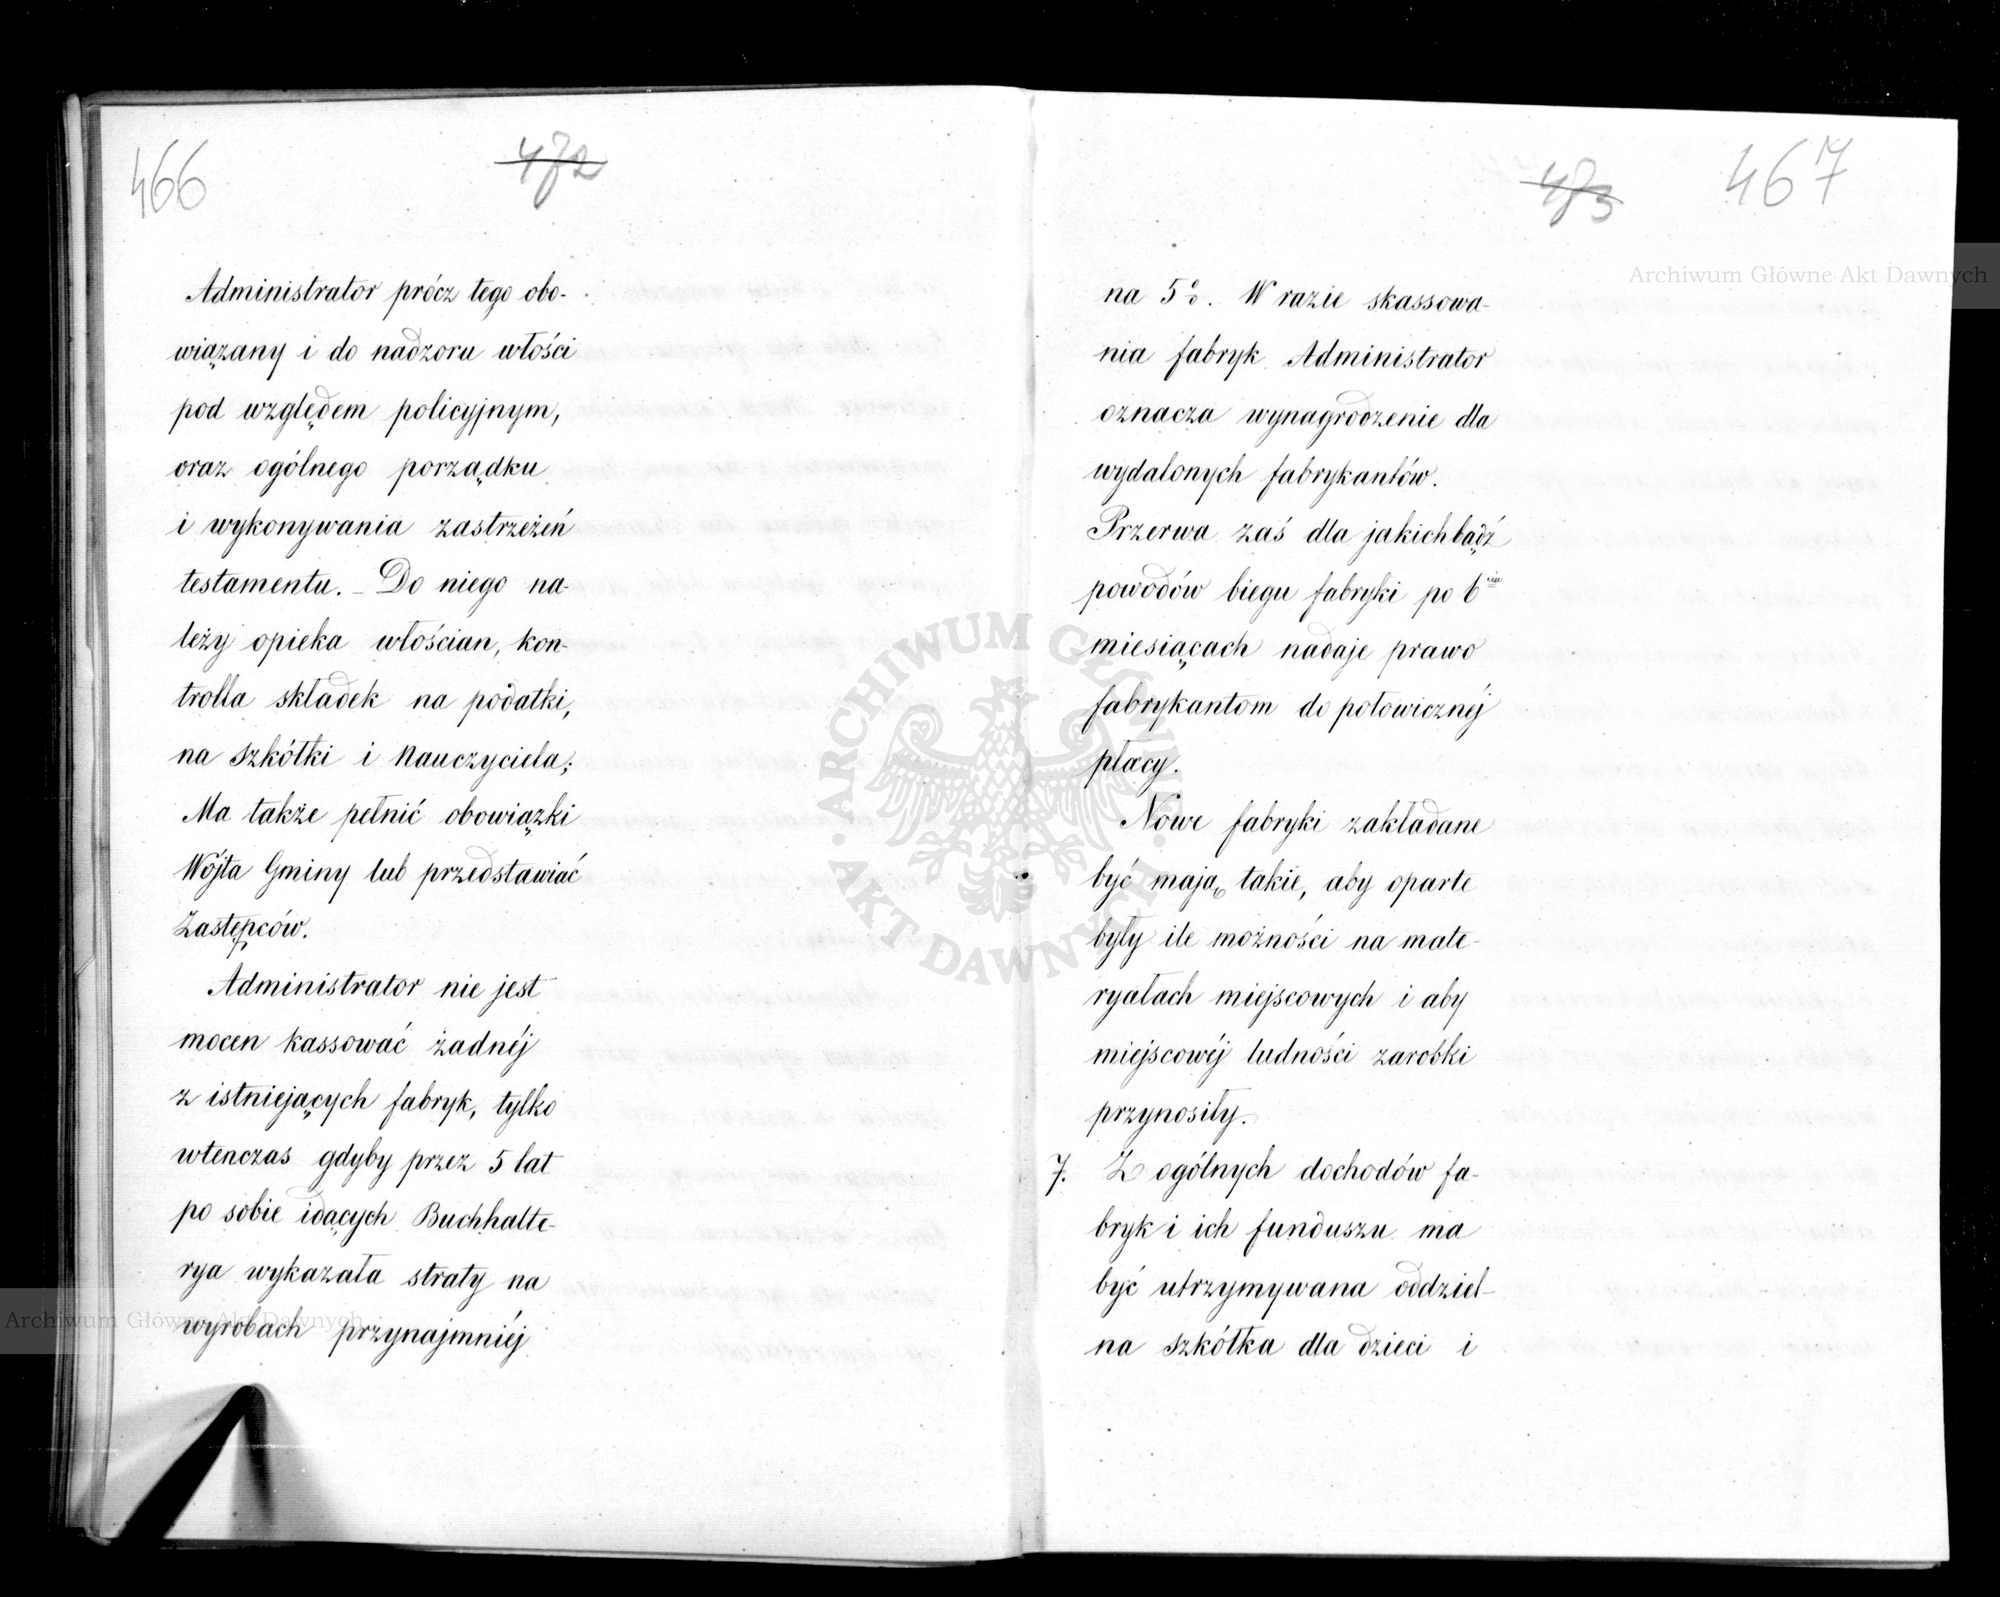 466
472
Administrator prócz tego obo-
wiązany i do nadzoru włości
pod względem policyjnym,
oraz ogólnego porządku
i wykonywania zastrzeżeń
testamentu. – Do niego na-
leży opieka włościan, kon-
trolla składek na podatki,
na szkółki i Nauczyciela;
Ma także pełnić obowiązki
Wójta Gminy lub przedstawiać
Zastępców.
Administrator nie jest
mocen kassować żadnéj
z istniejących fabryk, tylko
wtenczas gdyby przez 5 lat
po sobie idących Buchhalte-
rya wykazała straty na
wyrobach przynajmniéj
473
467
na 5%. W razie skassowa-
nia fabryk Administrator
oznacza wynagrodzenie dla
wydalonych fabrykantów.
Przerwa zaś dla jakichbądź
powodów biegu fabryki po 6ciu
miesiącach nadaje prawo
fabrykantom do połowicznéj
płacy.
Nowe fabryki zakładane
być mają takie, aby oparte
były ile możności na mate-
ryałach miejscowych i aby
miejscowéj ludności zarobki
przynosiły.
7. Z ogólnych dochodów fa-
bryk i ich funduszu ma
być utrzymywana oddziel-
na szkółka dla dzieci i
Archiwum Główne Akt Dawnych
Archiwum Główne Akt Dawnych
· ARCHIWUM GŁÓWNE · AKT DAWNYCH